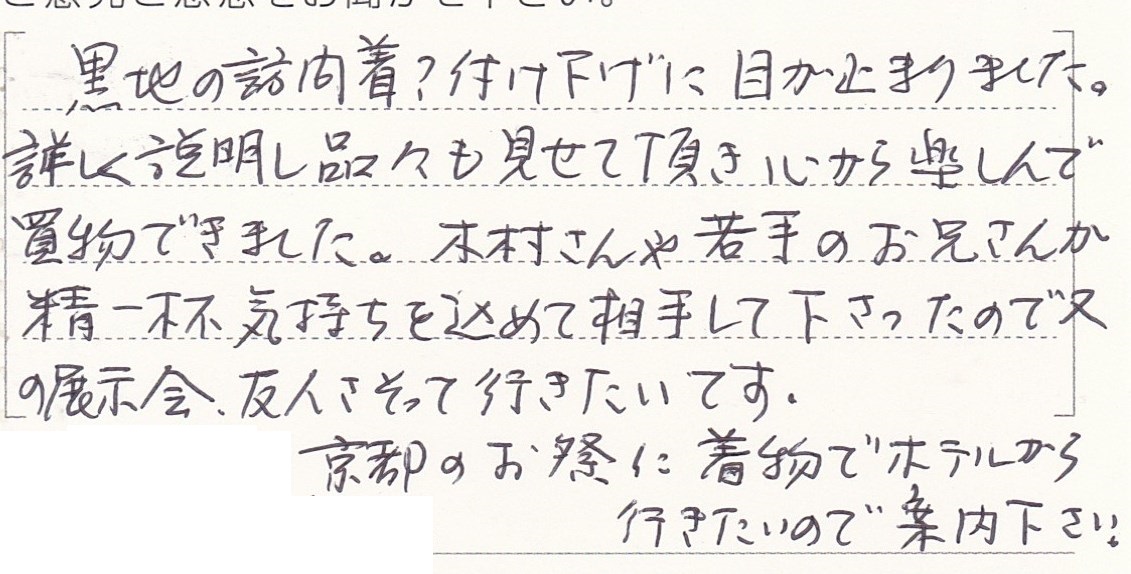 ご意見ご感想をお聞かせ下さい。
黒地の訪問着?付け下げに目が止まりました。
詳しく説明し品々も見せて頂き心から楽しんで
買物できました。木村さんや若手のお兄さんが
精一杯気持ちを込めて相手して下さったので又
の展示会、友人さそって行きたいです.
京都のお祭に着物でホテルから
行きたいので案内下さい。